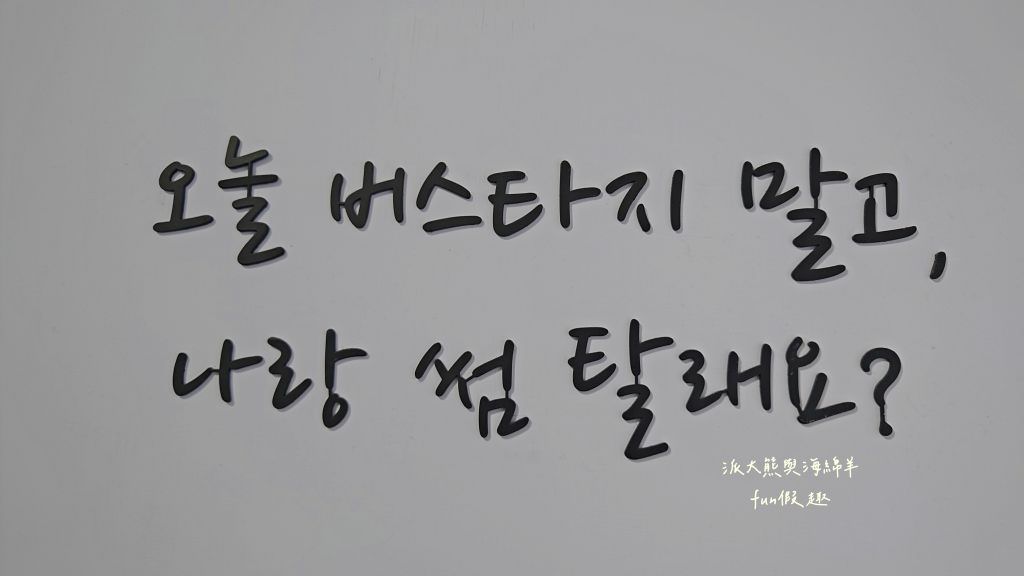 오늘 버스타지 말고,
나랑 썸 탈래요?
派大熊與海綿羊
fun假趣